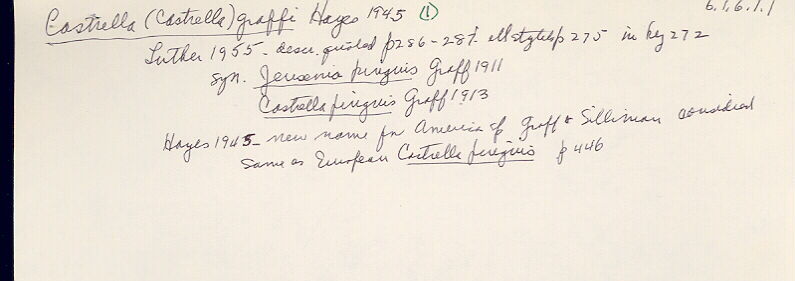 6.1.6.1.1
Castrella (Castrella) graffi Hayes 1945 (1)
Luther 1955 - descr. quoted p286-287. all stylets p 275 in key 272
syn. Jensenia pinguis Graff 1911
Castrella pinguis Graff 1913
Hayes 1945 - new name for America sp Graff & Silliman considered
same as European Castrella pinguis p 446